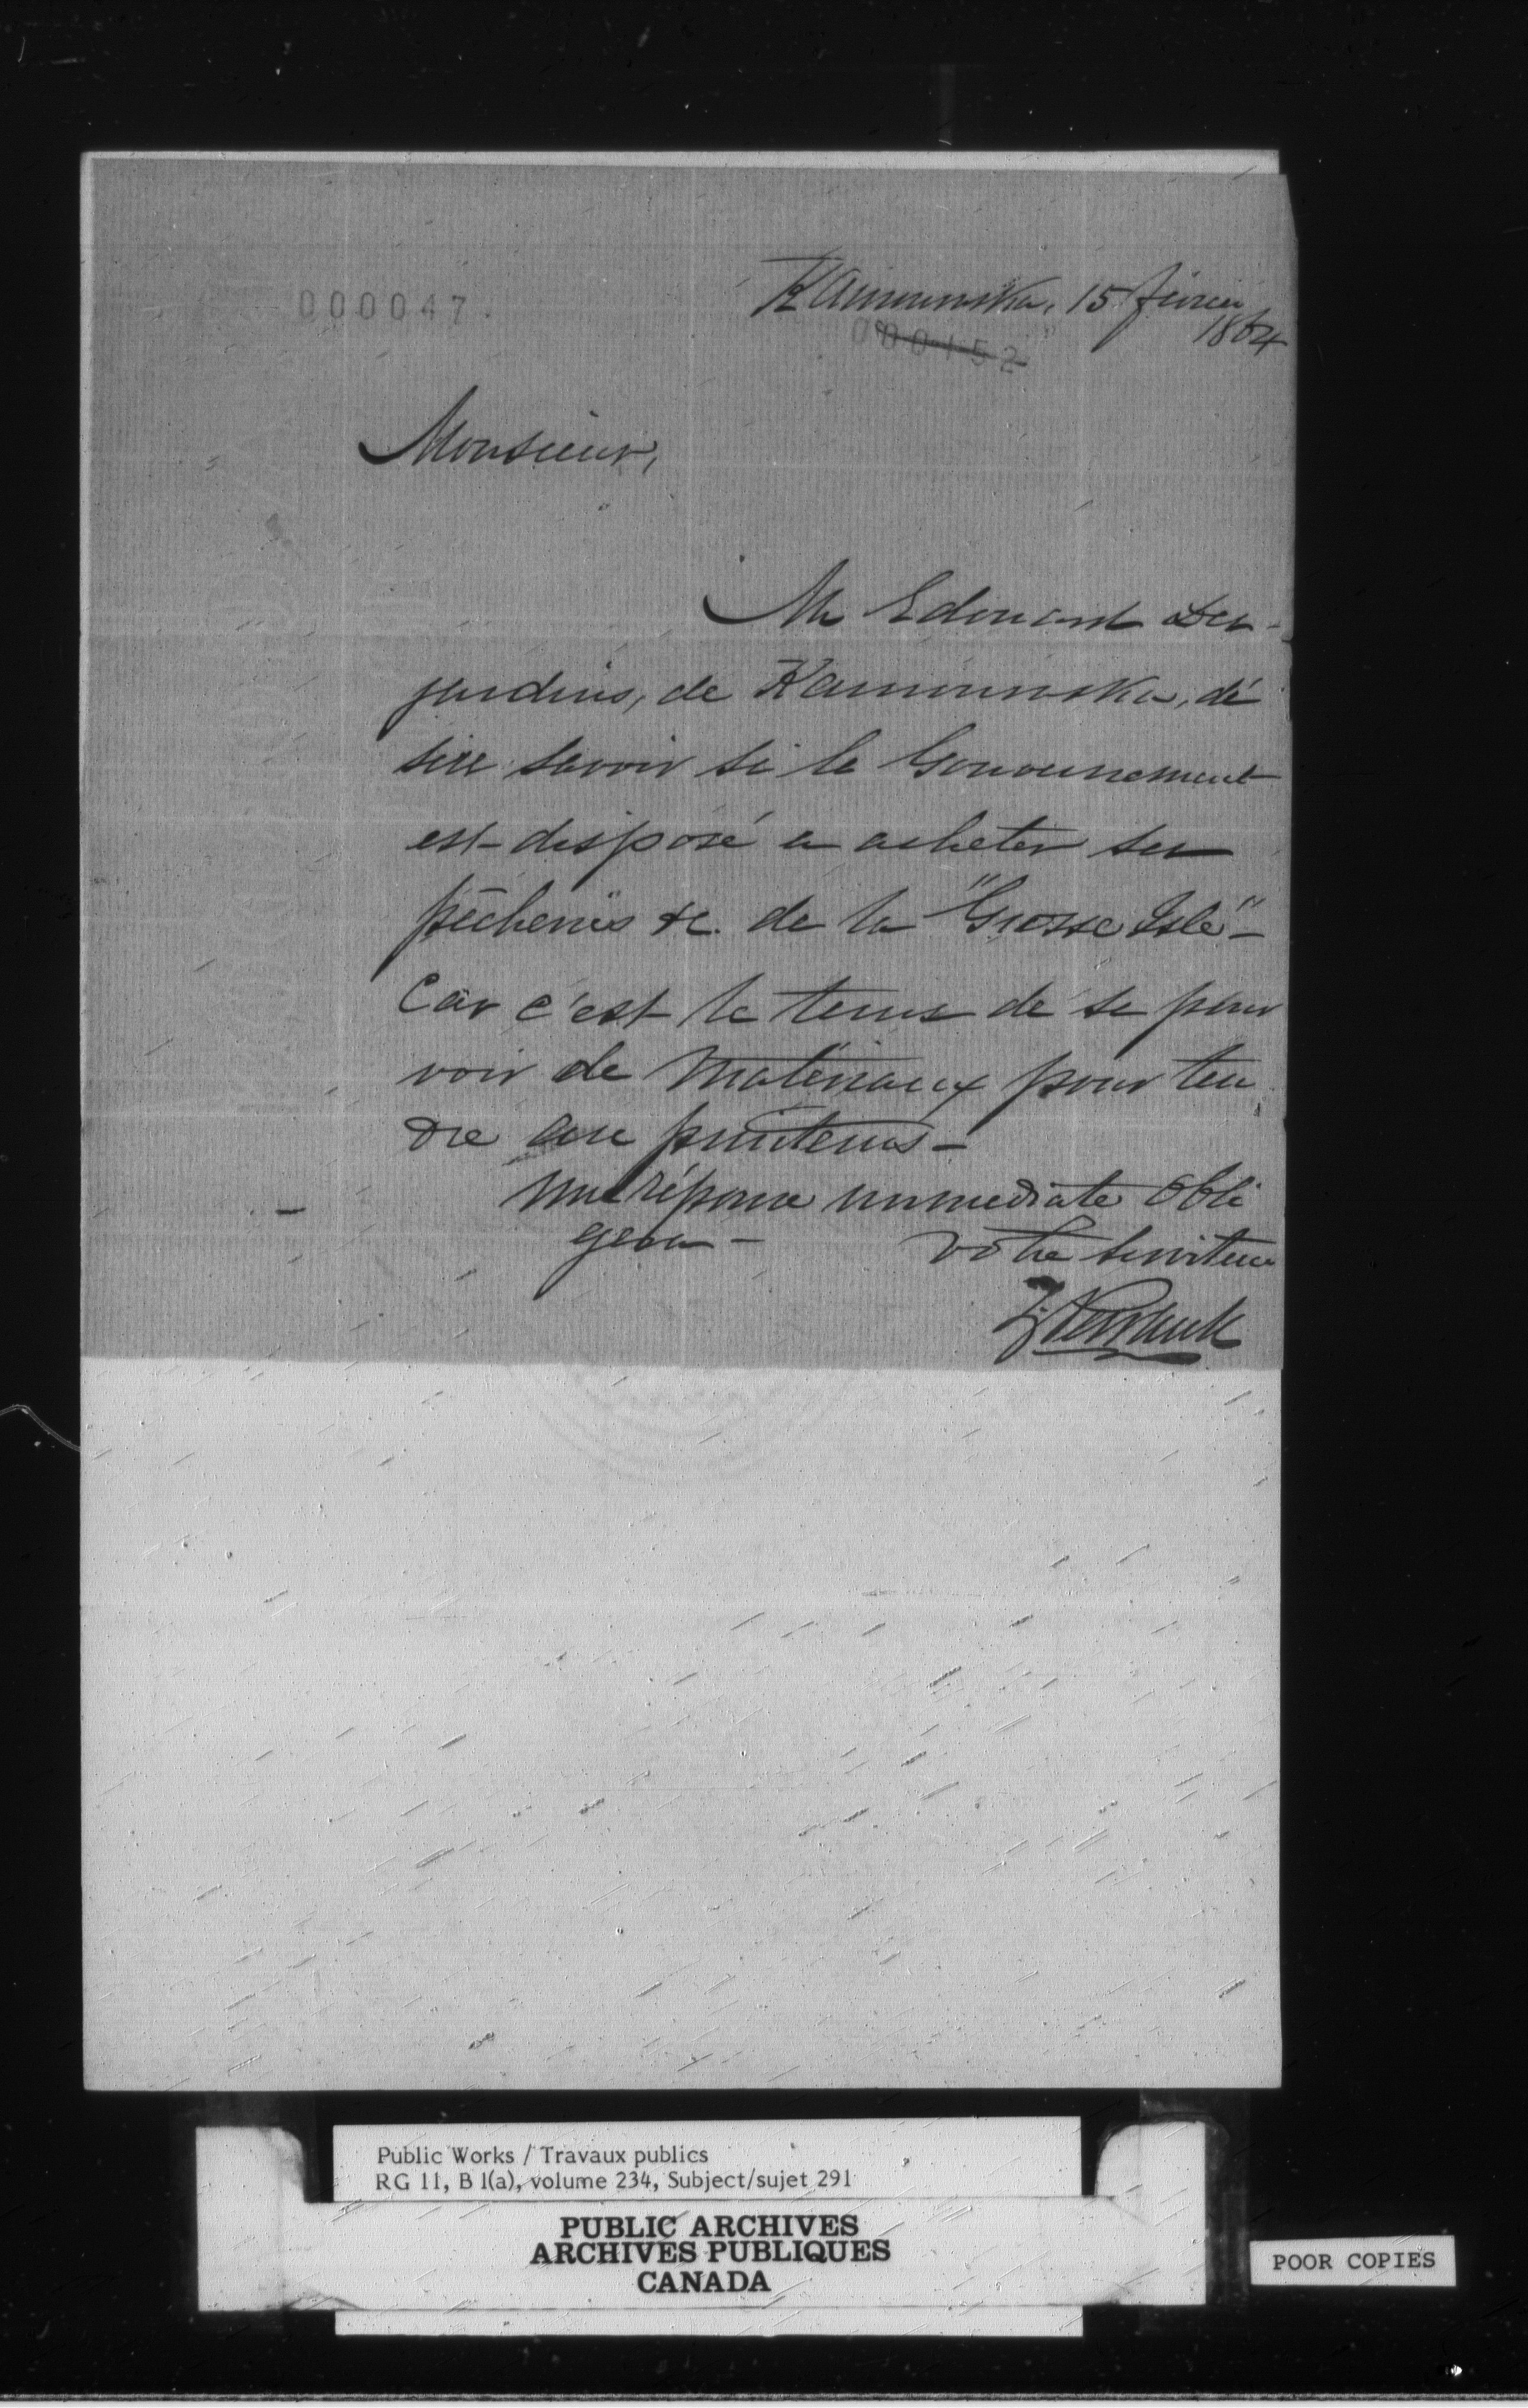 000047.
Kamouraska, 15 février
1864
000152
Monsieur,
Mr Edouard Des-
jardins, de Kamouraska, dé
sire savoir si le Gouvernement
est disposé a acheter ses
pêcheries &c. de la "Grosse Isle"-
Car c'est le tems de se pour
voir de matériaux pour ten
dre au printems -
une réponse immediate obli
gera - votre serviteur
Public Works / Travaux publics
RG 11, B 1(a), volume 234, Subject/sujet 291
PUBLIC ARCHIVES
ARCHIVES PUBLIQUES
CANADA
POOR COPIES